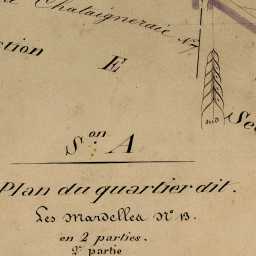 Chataigneraie N°7
ction
E
Se
S.on A
Plan du quartier dit.
Les Mardelles N° 13.
en 2 parties.
2e partie